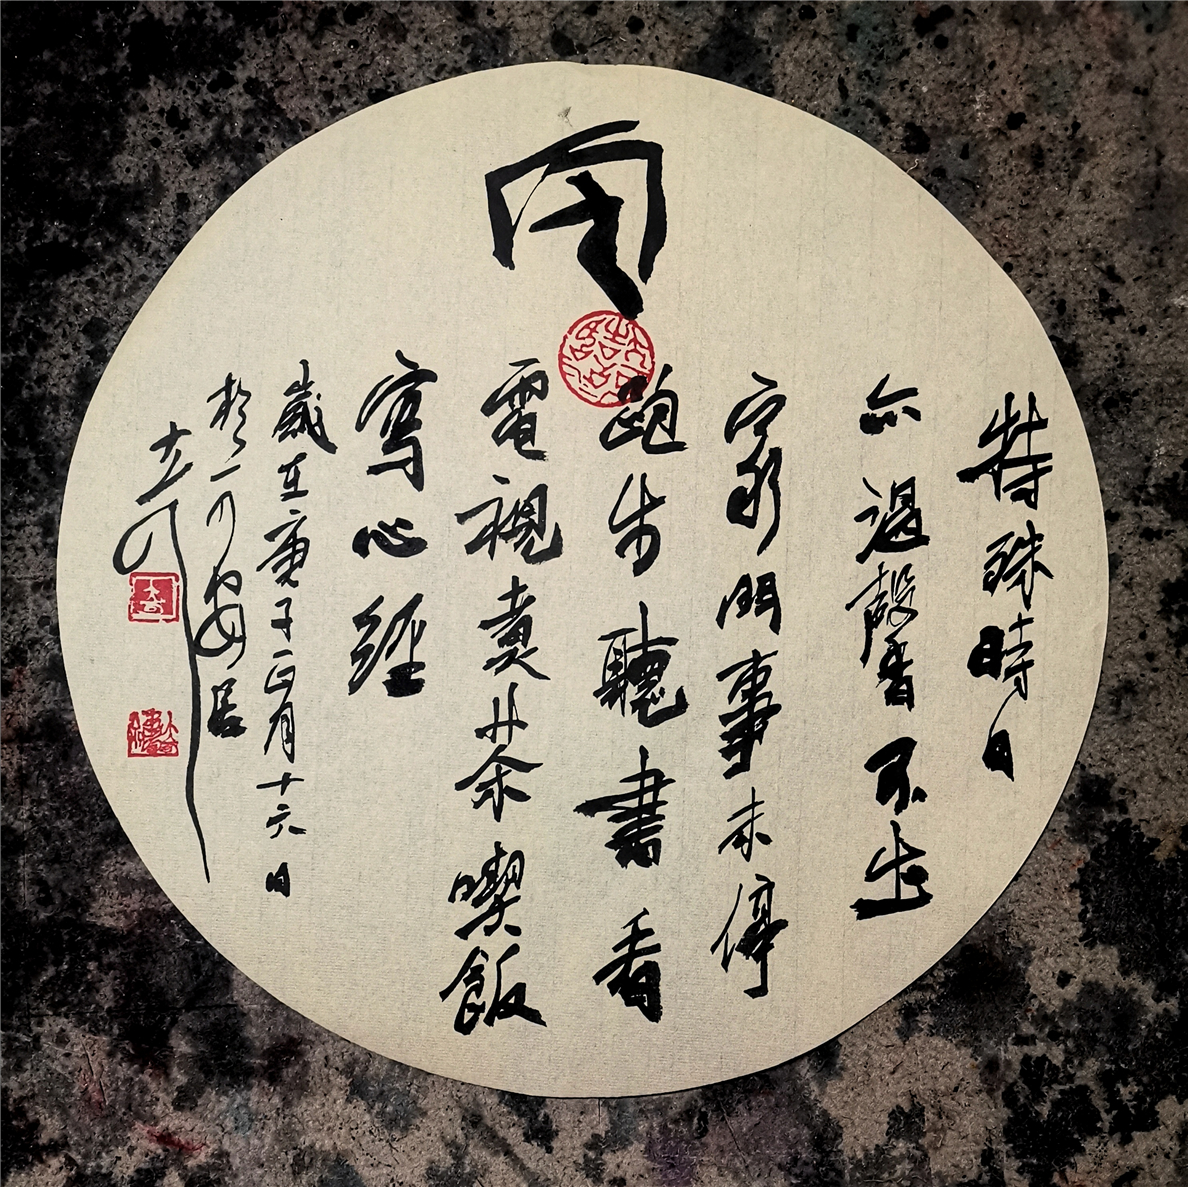 特殊時日
亦過馨香不出
家門事未停
跑步聽書看
電視煮茶喫飯
寫心經
歲在庚子正月十六日
於一可安居